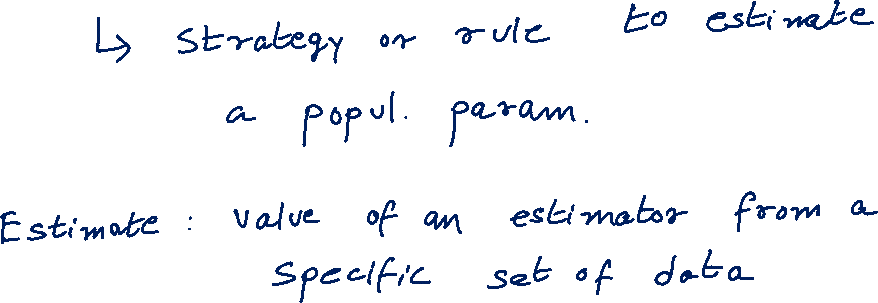 ↳ strategy or rule to estimate
a popul. param.
Estimate : value of an estimator from a
specific set of data